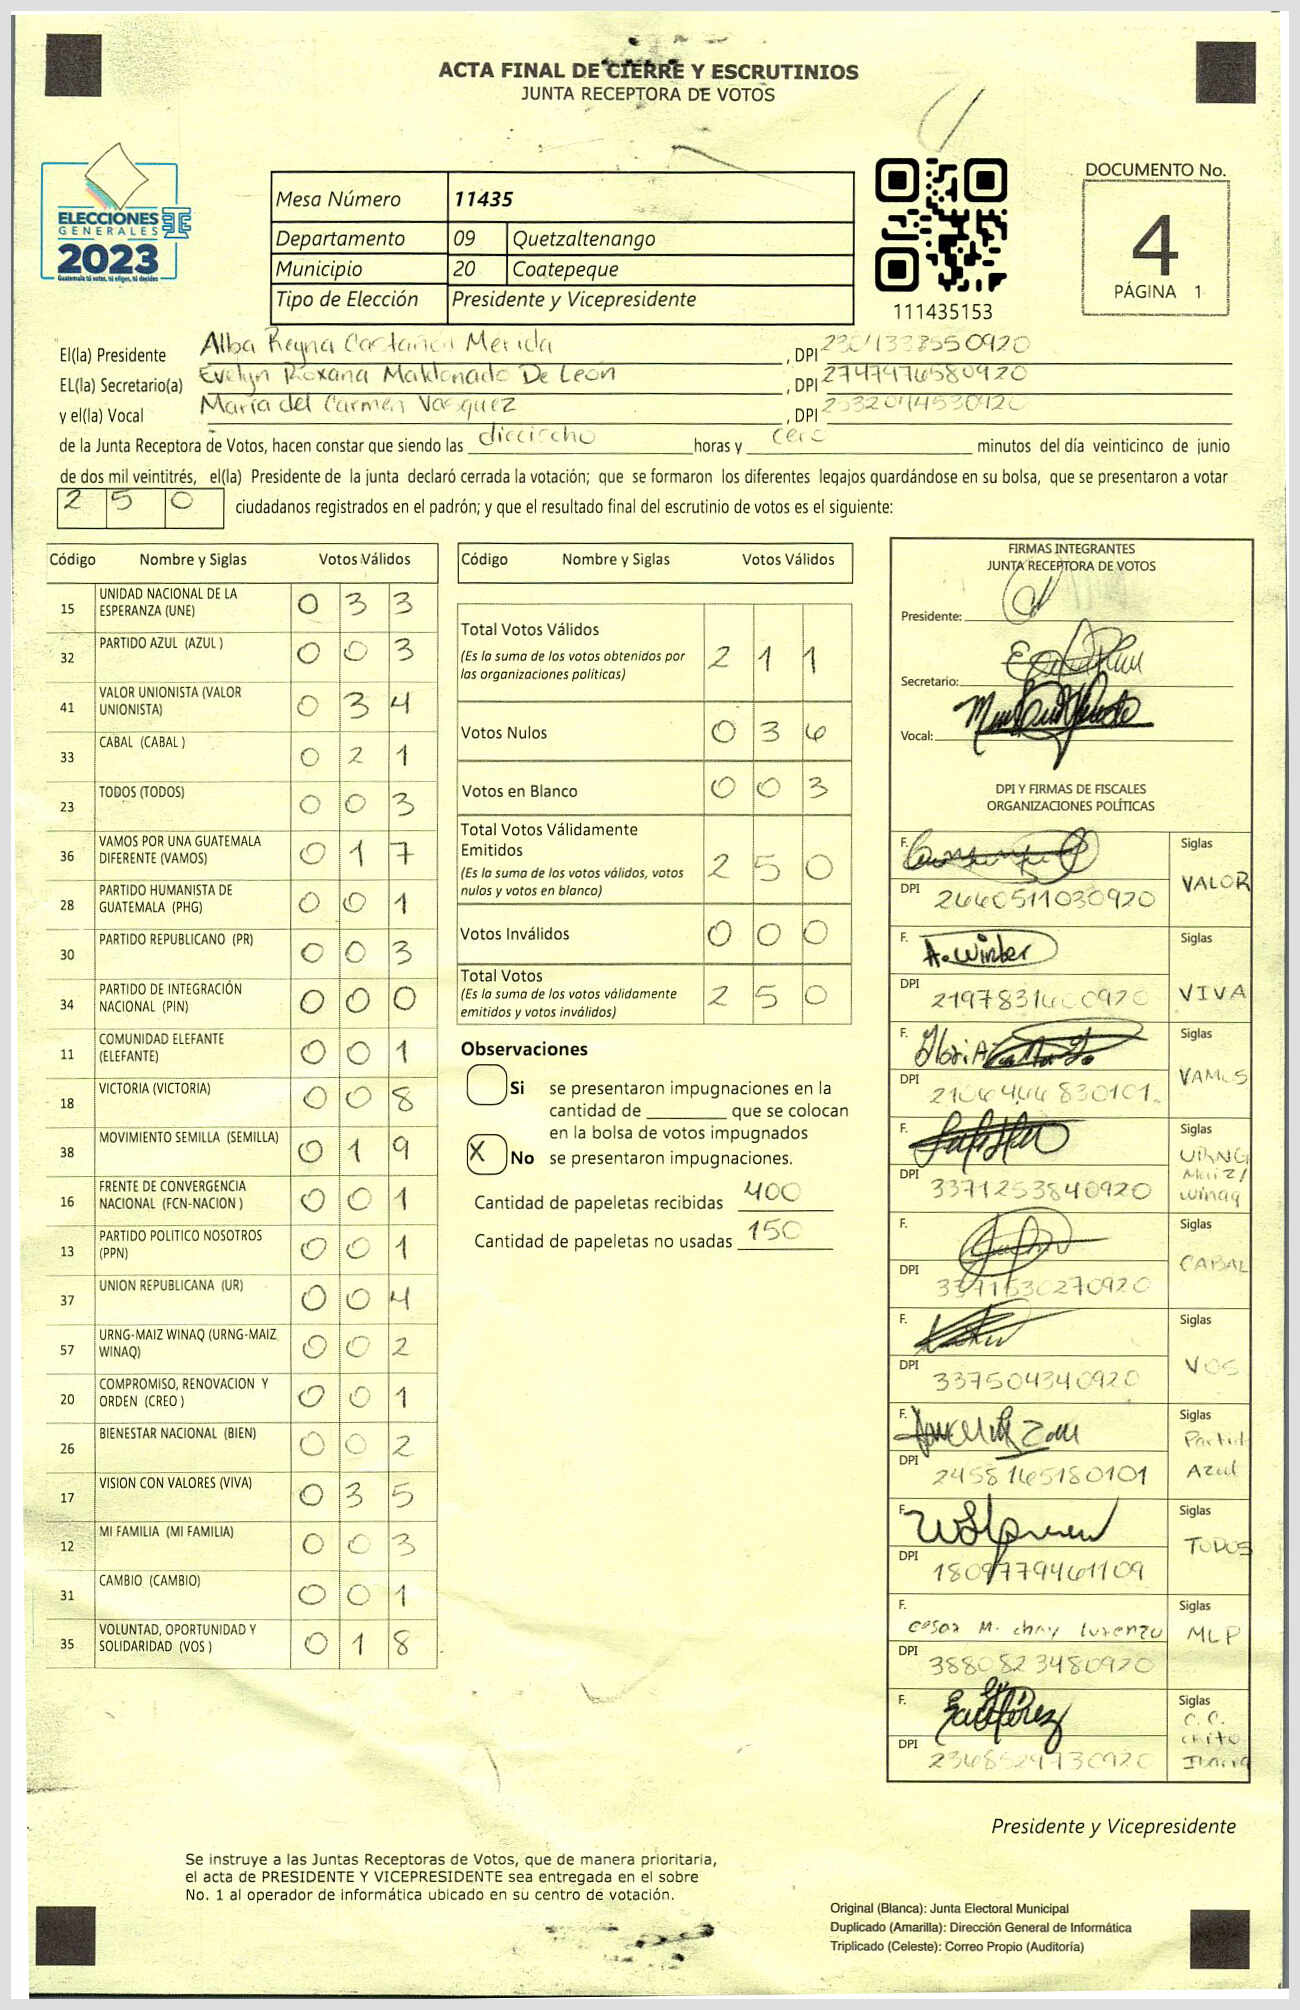 ACTA FINAL DE CIERRE Y ESCRUTINIOS
JUNTA RECEPTORA DE VOTOS
ELECCIONES
GENERALES
2023
Guatemala tú votas, tú eliges, tú decides
Mesa Número 11435
Departamento 09 Quetzaltenango
Municipio 20 Coatepeque
Tipo de Elección Presidente y Vicepresidente
111435153
DOCUMENTO No.
4
PÁGINA 1
El(la) Presidente Alba Reyna Castañón Merida , DPI
EL(la) Secretario(a) Evelyn Roxana Maldonado De León , DPI 2747476580920
y el(la) Vocal María del Carmen Vasquez , DPI
de la Junta Receptora de Votos, hacen constar que siendo las dieciocho horas y cero minutos del día veinticinco de junio
de dos mil veintitrés, el(la) Presidente de la junta declaró cerrada la votación; que se formaron los diferentes legajos guardándose en su bolsa, que se presentaron a votar
250 ciudadanos registrados en el padrón; y que el resultado final del escrutinio de votos es el siguiente:
Código Nombre y Siglas Votos Válidos
15 UNIDAD NACIONAL DE LA ESPERANZA (UNE) 0 3 3
32 PARTIDO AZUL (AZUL ) 0 0 3
41 VALOR UNIONISTA (VALOR UNIONISTA) 0 3 4
33 CABAL (CABAL ) 0 2 1
23 TODOS (TODOS) 0 0 3
36 VAMOS POR UNA GUATEMALA DIFERENTE (VAMOS) 0 1 7
28 PARTIDO HUMANISTA DE GUATEMALA (PHG) 0 0 1
30 PARTIDO REPUBLICANO (PR) 0 0 3
34 PARTIDO DE INTEGRACIÓN NACIONAL (PIN) 0 0 0
11 COMUNIDAD ELEFANTE (ELEFANTE) 0 0 1
18 VICTORIA (VICTORIA) 0 0 8
38 MOVIMIENTO SEMILLA (SEMILLA) 0 1 9
16 FRENTE DE CONVERGENCIA NACIONAL (FCN-NACION ) 0 0 1
13 PARTIDO POLITICO NOSOTROS (PPN) 0 0 1
37 UNION REPUBLICANA (UR) 0 0 4
57 URNG-MAIZ WINAQ (URNG-MAIZ WINAQ) 0 0 2
20 COMPROMISO, RENOVACION Y ORDEN (CREO ) 0 0 1
26 BIENESTAR NACIONAL (BIEN) 0 0 2
17 VISION CON VALORES (VIVA) 0 3 5
12 MI FAMILIA (MI FAMILIA) 0 0 3
31 CAMBIO (CAMBIO) 0 0 1
35 VOLUNTAD, OPORTUNIDAD Y SOLIDARIDAD (VOS ) 0 1 8
Código Nombre y Siglas Votos Válidos
Total Votos Válidos 2 1 1
(Es la suma de los votos obtenidos por
las organizaciones políticas)
Votos Nulos 0 3 6
Votos en Blanco 0 0 3
Total Votos Válidamente
Emitidos 2 5 0
(Es la suma de los votos válidos, votos
nulos y votos en blanco)
Votos Inválidos 0 0 0
Total Votos 2 5 0
(Es la suma de los votos válidamente
emitidos y votos inválidos)
Observaciones
Si se presentaron impugnaciones en la
cantidad de ________ que se colocan
en la bolsa de votos impugnados
X No se presentaron impugnaciones.
Cantidad de papeletas recibidas 400
Cantidad de papeletas no usadas 150
FIRMAS INTEGRANTES
JUNTA RECEPTORA DE VOTOS
Presidente:
Secretario:
Vocal:
DPI Y FIRMAS DE FISCALES
ORGANIZACIONES POLÍTICAS
F. Siglas
DPI 2640511030920 VALOR
F. A. Winter Siglas
DPI VIVA
F. Siglas
DPI VAMOS
F. Siglas URNG
DPI 3371253840920 Maiz/ Winaq
F. Siglas
DPI CABAL
F. Siglas
DPI 337504340920 VOS
F. Siglas
DPI 2458165180101 Partido Azul
F. Siglas
DPI TODOS
F. Cesar M. Chay Lorenzo Siglas
DPI 3880823480920 MLP
F. Siglas C.C.
DPI Chito Ibarra
Presidente y Vicepresidente
Se instruye a las Juntas Receptoras de Votos, que de manera prioritaria,
el acta de PRESIDENTE Y VICEPRESIDENTE sea entregada en el sobre
No. 1 al operador de informática ubicado en su centro de votación.
Original (Blanca): Junta Electoral Municipal
Duplicado (Amarilla): Dirección General de Informática
Triplicado (Celeste): Correo Propio (Auditoría)